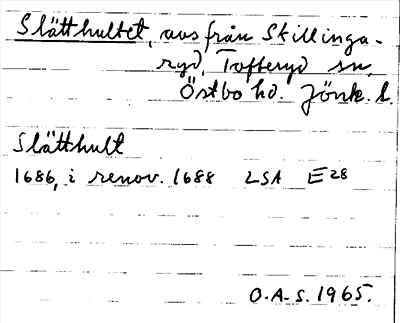 Slätthultet, avs från Skillinga-
ryd, Tofteryd sn,
Östbo hd. Jönk. l.
Slätthult
1686, i renov. 1688 LSA E28
O.A.S. 1965.